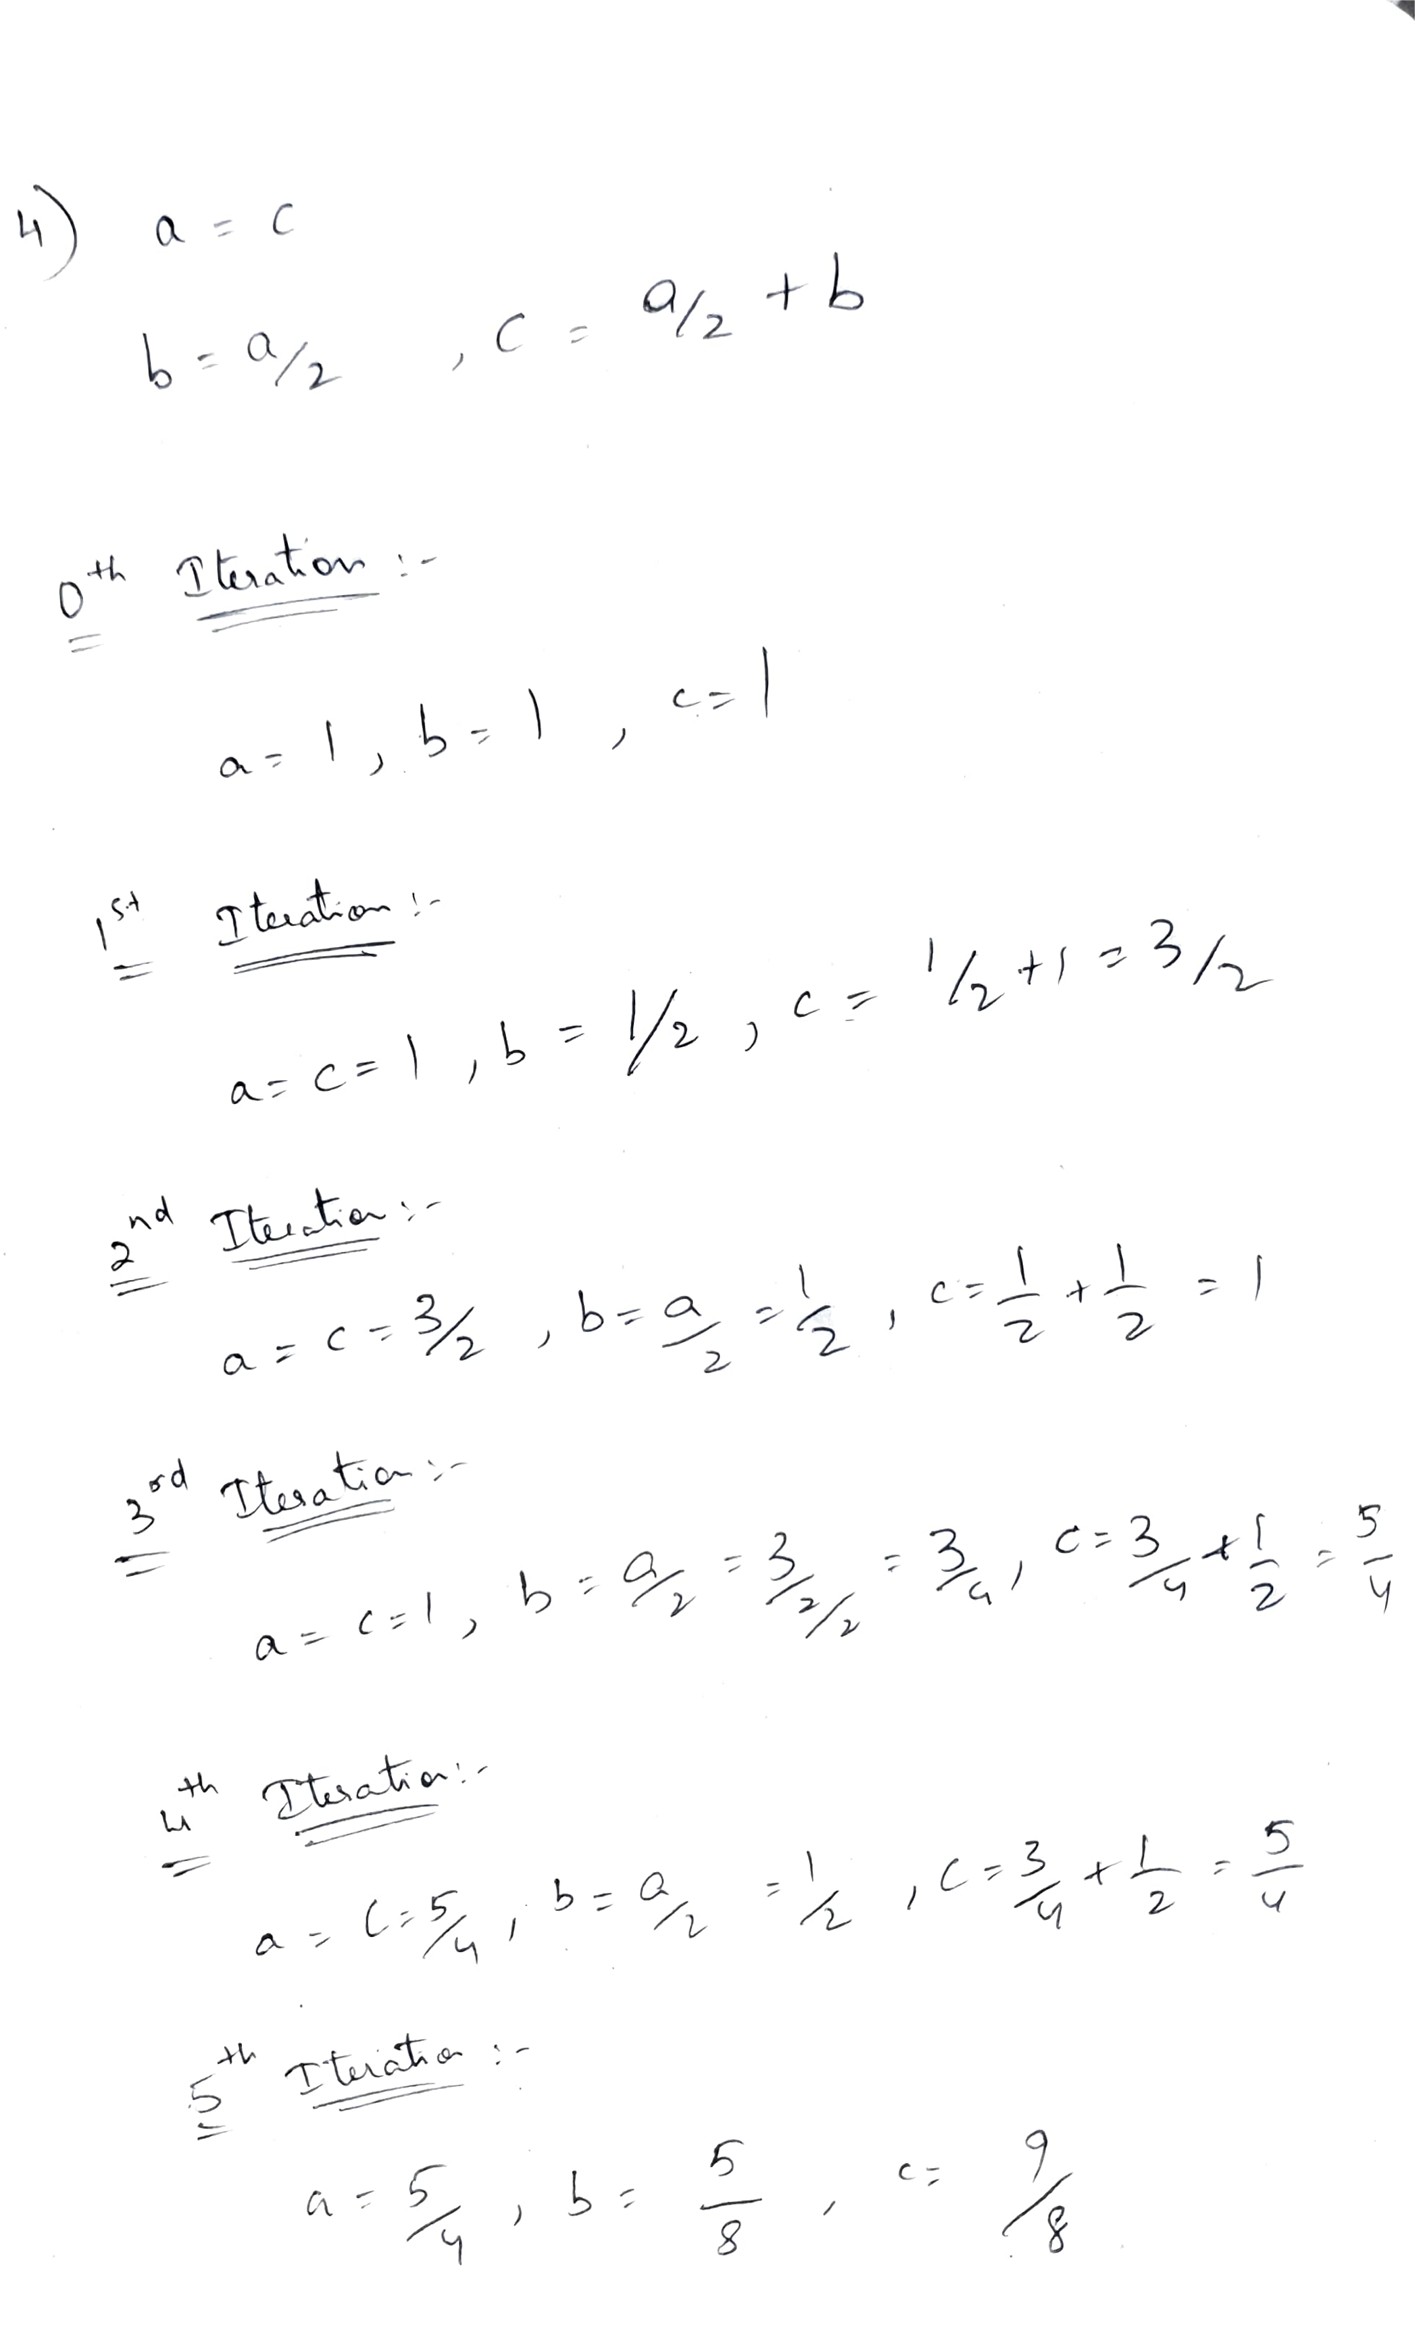 4) a = c
b = a/2 , c = a/2 + b
0th Iteration :-
a = 1 , b = 1 , c = 1
1st Iteration :-
a = c = 1 , b = 1/2 , c = 1/2 + 1 = 3/2
2nd Iteration :-
a = c = 3/2 , b = a/2 = 1/2 , c = 1/2 + 1/2 = 1
3rd Iteration :-
a = c = 1 , b = a/2 = 3/2/2 = 3/4 , c = 3/4 + 1/2 = 5/4
4th Iteration :-
a = c = 5/4 , b = a/2 = 1/2 , c = 3/4 + 1/2 = 5/4
5th Iteration :-
a = 5/4 , b = 5/8 , c = 9/8